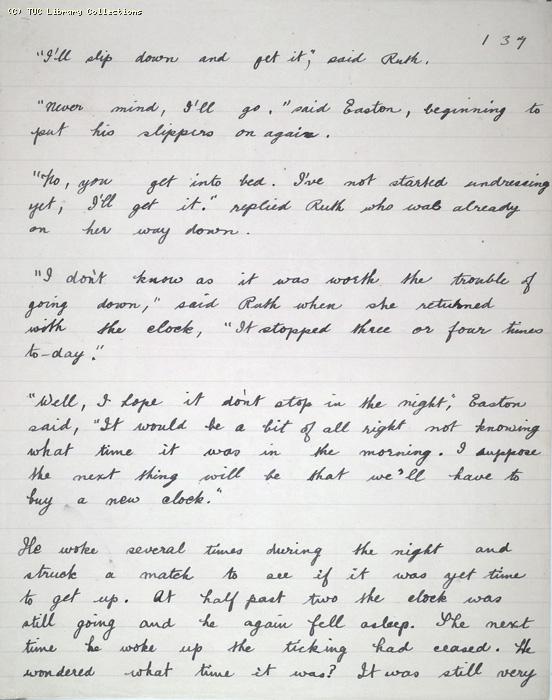 (C) TUC Library Collections
137
"I'll slip down and get it", said Ruth.
"Never mind, I'll go." said Easton, beginning to
put his slippers on again.
"No, you get into bed. I've not started undressing
yet, I'll get it." replied Ruth who was already
on her way down.
"I don't know as it was worth the trouble of
going down," said Ruth when she returned
with the clock, "It stopped three or four times
to-day."
"Well, I hope it don't stop in the night", Easton
said, "It would be a bit of all right not knowing
what time it was in the morning. I suppose
the next thing will be that we'll have to
buy a new clock."
He woke several times during the night and
struck a match to see if it was yet time
to get up. At half past two the clock was
still going and he again fell asleep. The next
time he woke up the ticking had ceased. He
wondered what time it was? It was still very